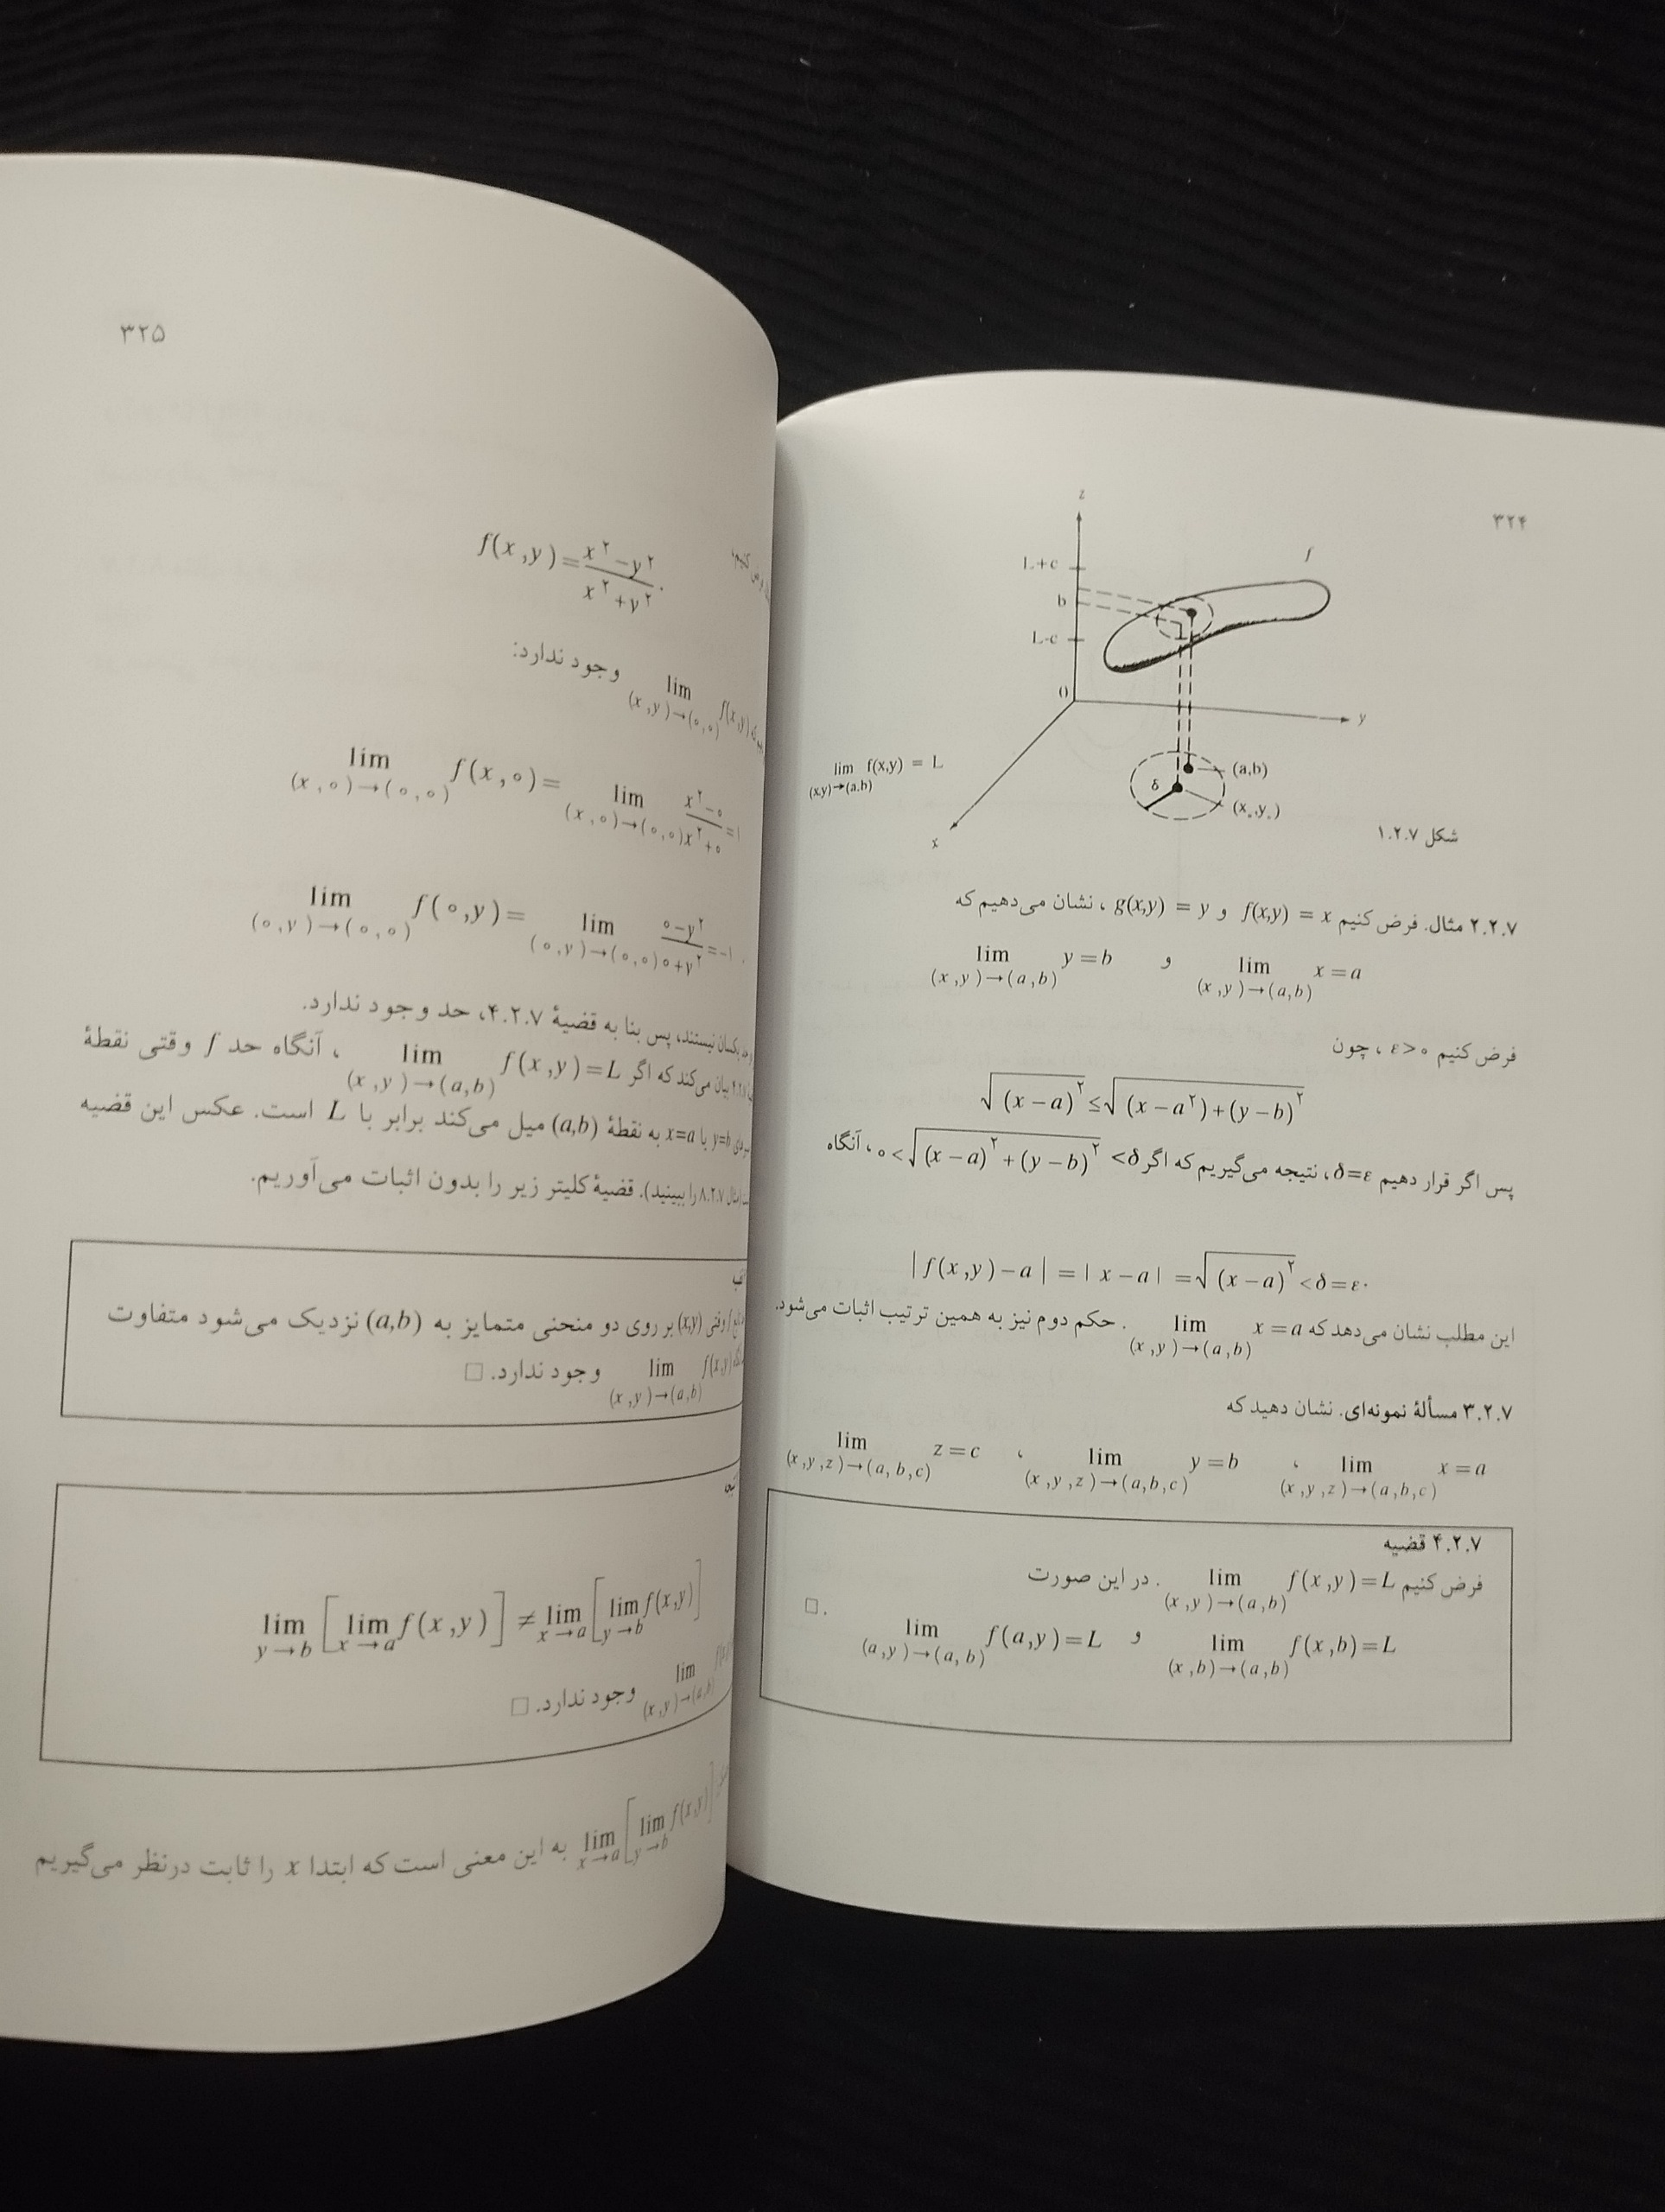 ۳۲۴
z
f
L+c
b
L-c
0
y
x
δ
(a,b)
(x₀,y₀)
lim f(x,y) = L
(x,y)→(a.b)
شکل ۱.۲.۷
۲.۲.۷ مثال. فرض کنیم f(x,y) = x و g(x,y) = y ، نشان می‌دهیم که
lim x=a و lim y=b
(x,y)→(a,b) (x,y)→(a,b)
فرض کنیم ε>۰ ، چون
√(x−a)^۲ ≤ √(x−a^۲)+(y−b)^۲
پس اگر قرار دهیم δ=ε، نتیجه می‌گیریم که اگر ۰<√(x−a)^۲+(y−b)^۲ <δ، آنگاه
|f(x,y)−a| = |x−a| = √(x−a)^۲ <δ=ε.
این مطلب نشان می‌دهد که lim x=a . حکم دوم نیز به همین ترتیب اثبات می‌شود.
(x,y)→(a,b)
۳.۲.۷ مسألهٔ نمونه‌ای. نشان دهید که
lim x=a ، lim y=b ، lim z=c
(x,y,z)→(a,b,c) (x,y,z)→(a,b,c) (x,y,z)→(a,b,c)
۴.۲.۷ قضیه
فرض کنیم lim f(x,y)=L . در این صورت
(x,y)→(a,b)
lim f(x,b)=L و lim f(a,y)=L . □
(x,b)→(a,b) (a,y)→(a,b)
۳۲۵
کنیم،
f(x,y)=(x^۲−y^۲)/(x^۲+y^۲).
lim f(x,y) وجود ندارد:
(x,y)→(۰,۰)
lim f(x,۰)= lim (x^۲−۰)/(x^۲+۰)=۱
(x,۰)→(۰,۰) (x,۰)→(۰,۰)
lim f(۰,y)= lim (۰−y^۲)/(۰+y^۲)=−۱ .
(۰,y)→(۰,۰) (۰,y)→(۰,۰)
یکسان نیستند، پس بنا به قضیهٔ ۴.۲.۷، حد وجود ندارد.
بیان می‌کند که اگر lim f(x,y)=L ، آنگاه حد f وقتی نقطهٔ
(x,y)→(a,b)
y=b یا x=a به نقطهٔ (a,b) میل می‌کند برابر با L است. عکس این قضیه
۸.۲.۷ را ببینید). قضیهٔ کلیتر زیر را بدون اثبات می‌آوریم.
وقتی (x,y) بر روی دو منحنی متمایز به (a,b) نزدیک می‌شود متفاوت
lim f(x,y) وجود ندارد. □
(x,y)→(a,b)
lim [lim f(x,y)] ≠ lim [lim f(x,y)]
y→b x→a x→a y→b
lim وجود ندارد. □
(x,y)→(a,b)
lim [lim f(x,y)] به این معنی است که ابتدا x را ثابت درنظر می‌گیریم
x→a y→b